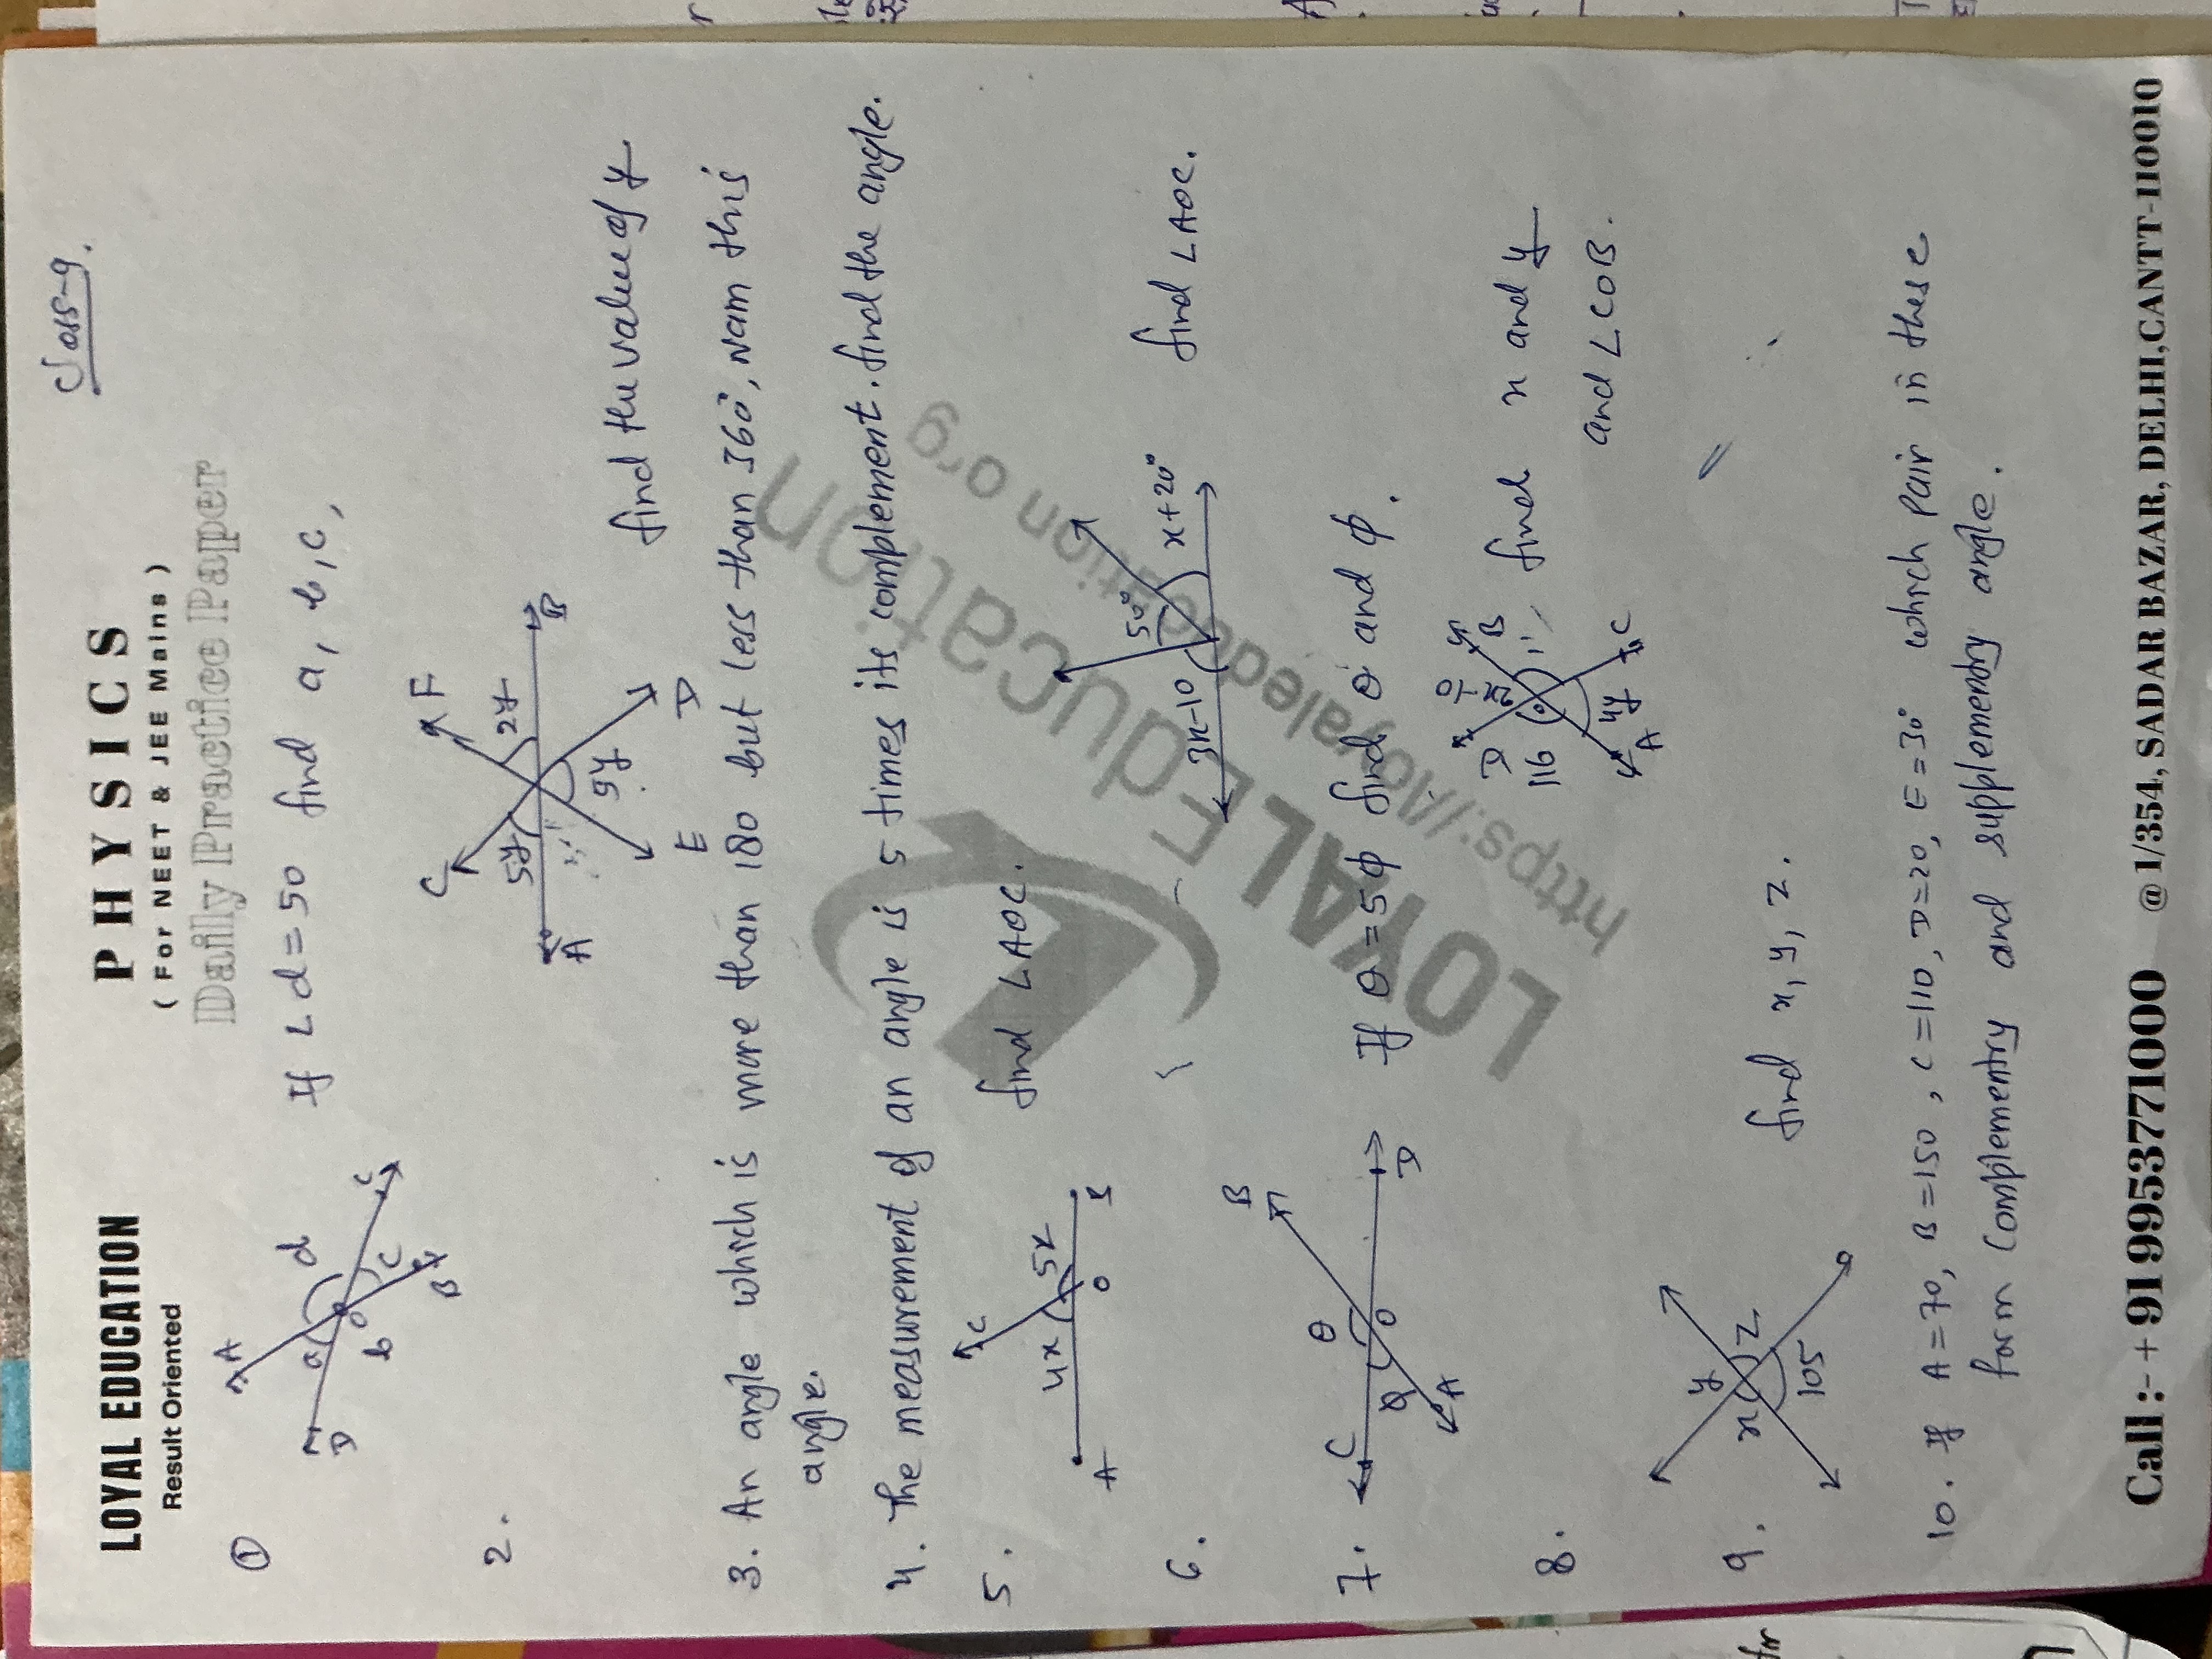 class-9.
LOYAL EDUCATION
Result Oriented
PHYSICS
( For NEET & JEE Mains )
Daily Practice Paper
① A d a D o b c C B If ∠d=50 find a, b, c,
2. C F 5y 2y A B 5y E D find the value of y
3. An angle which is more than 180 but less than 360°, nam this
angle.
4. The measurement of an angle is 5 times its complement. find the angle.
5. C 4x 5x A O B find ∠AOC.
6. 3x-10 50° x+20° find ∠AOC.
7. C B θ O D A If θ=5ϕ find θ and ϕ.
8. D B 116 O 4y A C find x and y
and ∠COB.
9. y x z 105 find x, y, z.
10. If A=70, B=150, C=110, D=20, E=30° which pair in these
form complementry and supplementry angle.
LOYALEducation
https://loyaleducation.org
Call :- + 91 9953771000 @1/354, SADAR BAZAR, DELHI,CANTT-110010